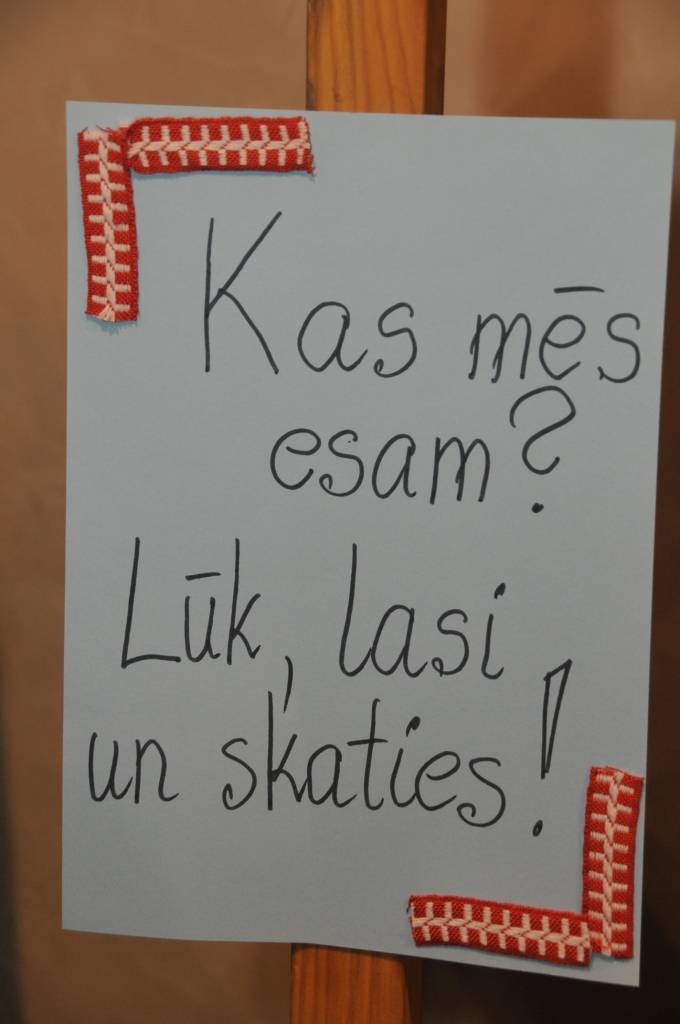 Kas mēs
esam?
Lūk, lasi
un skaties!